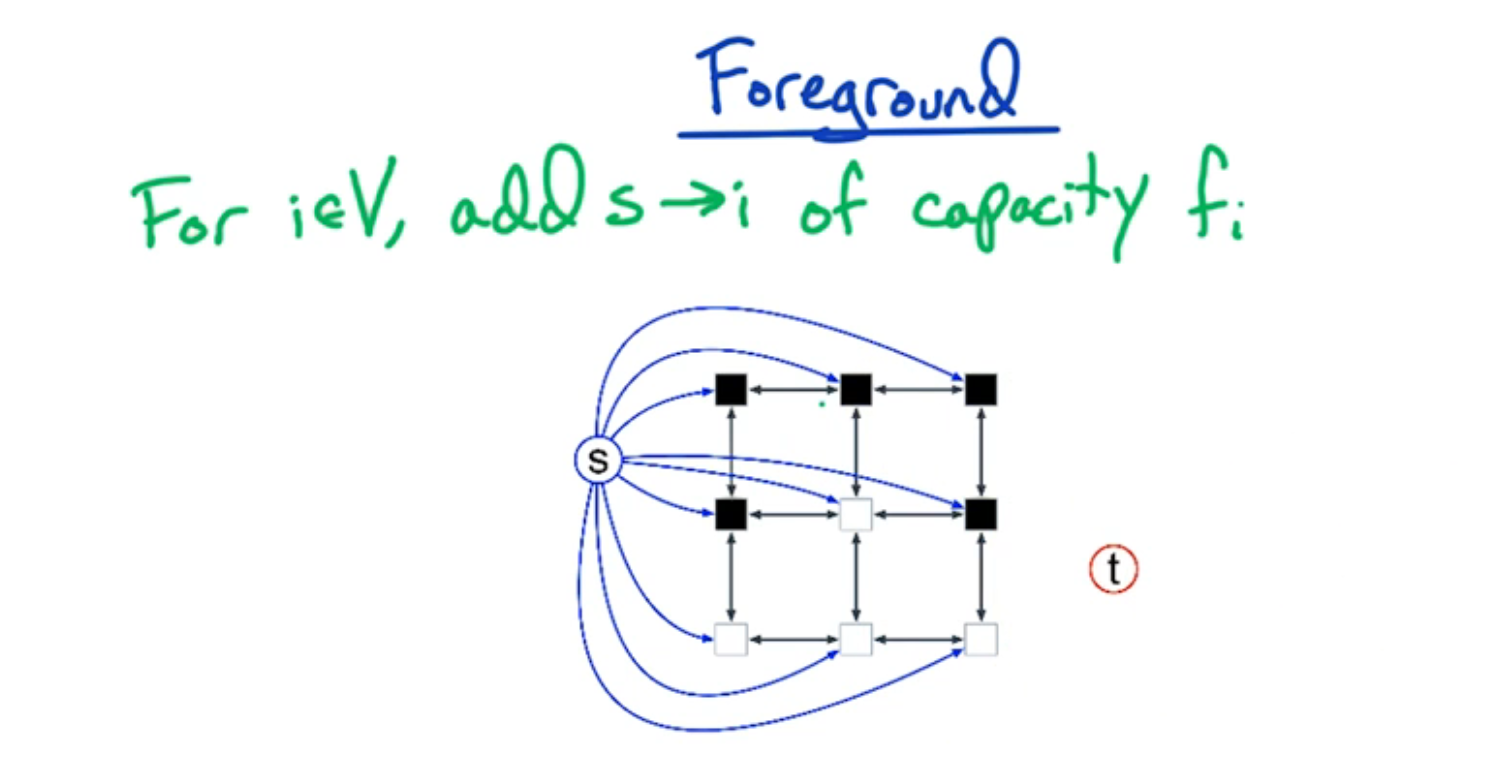 Foreground
For i∈V, add s→i of capacity fᵢ
s
t